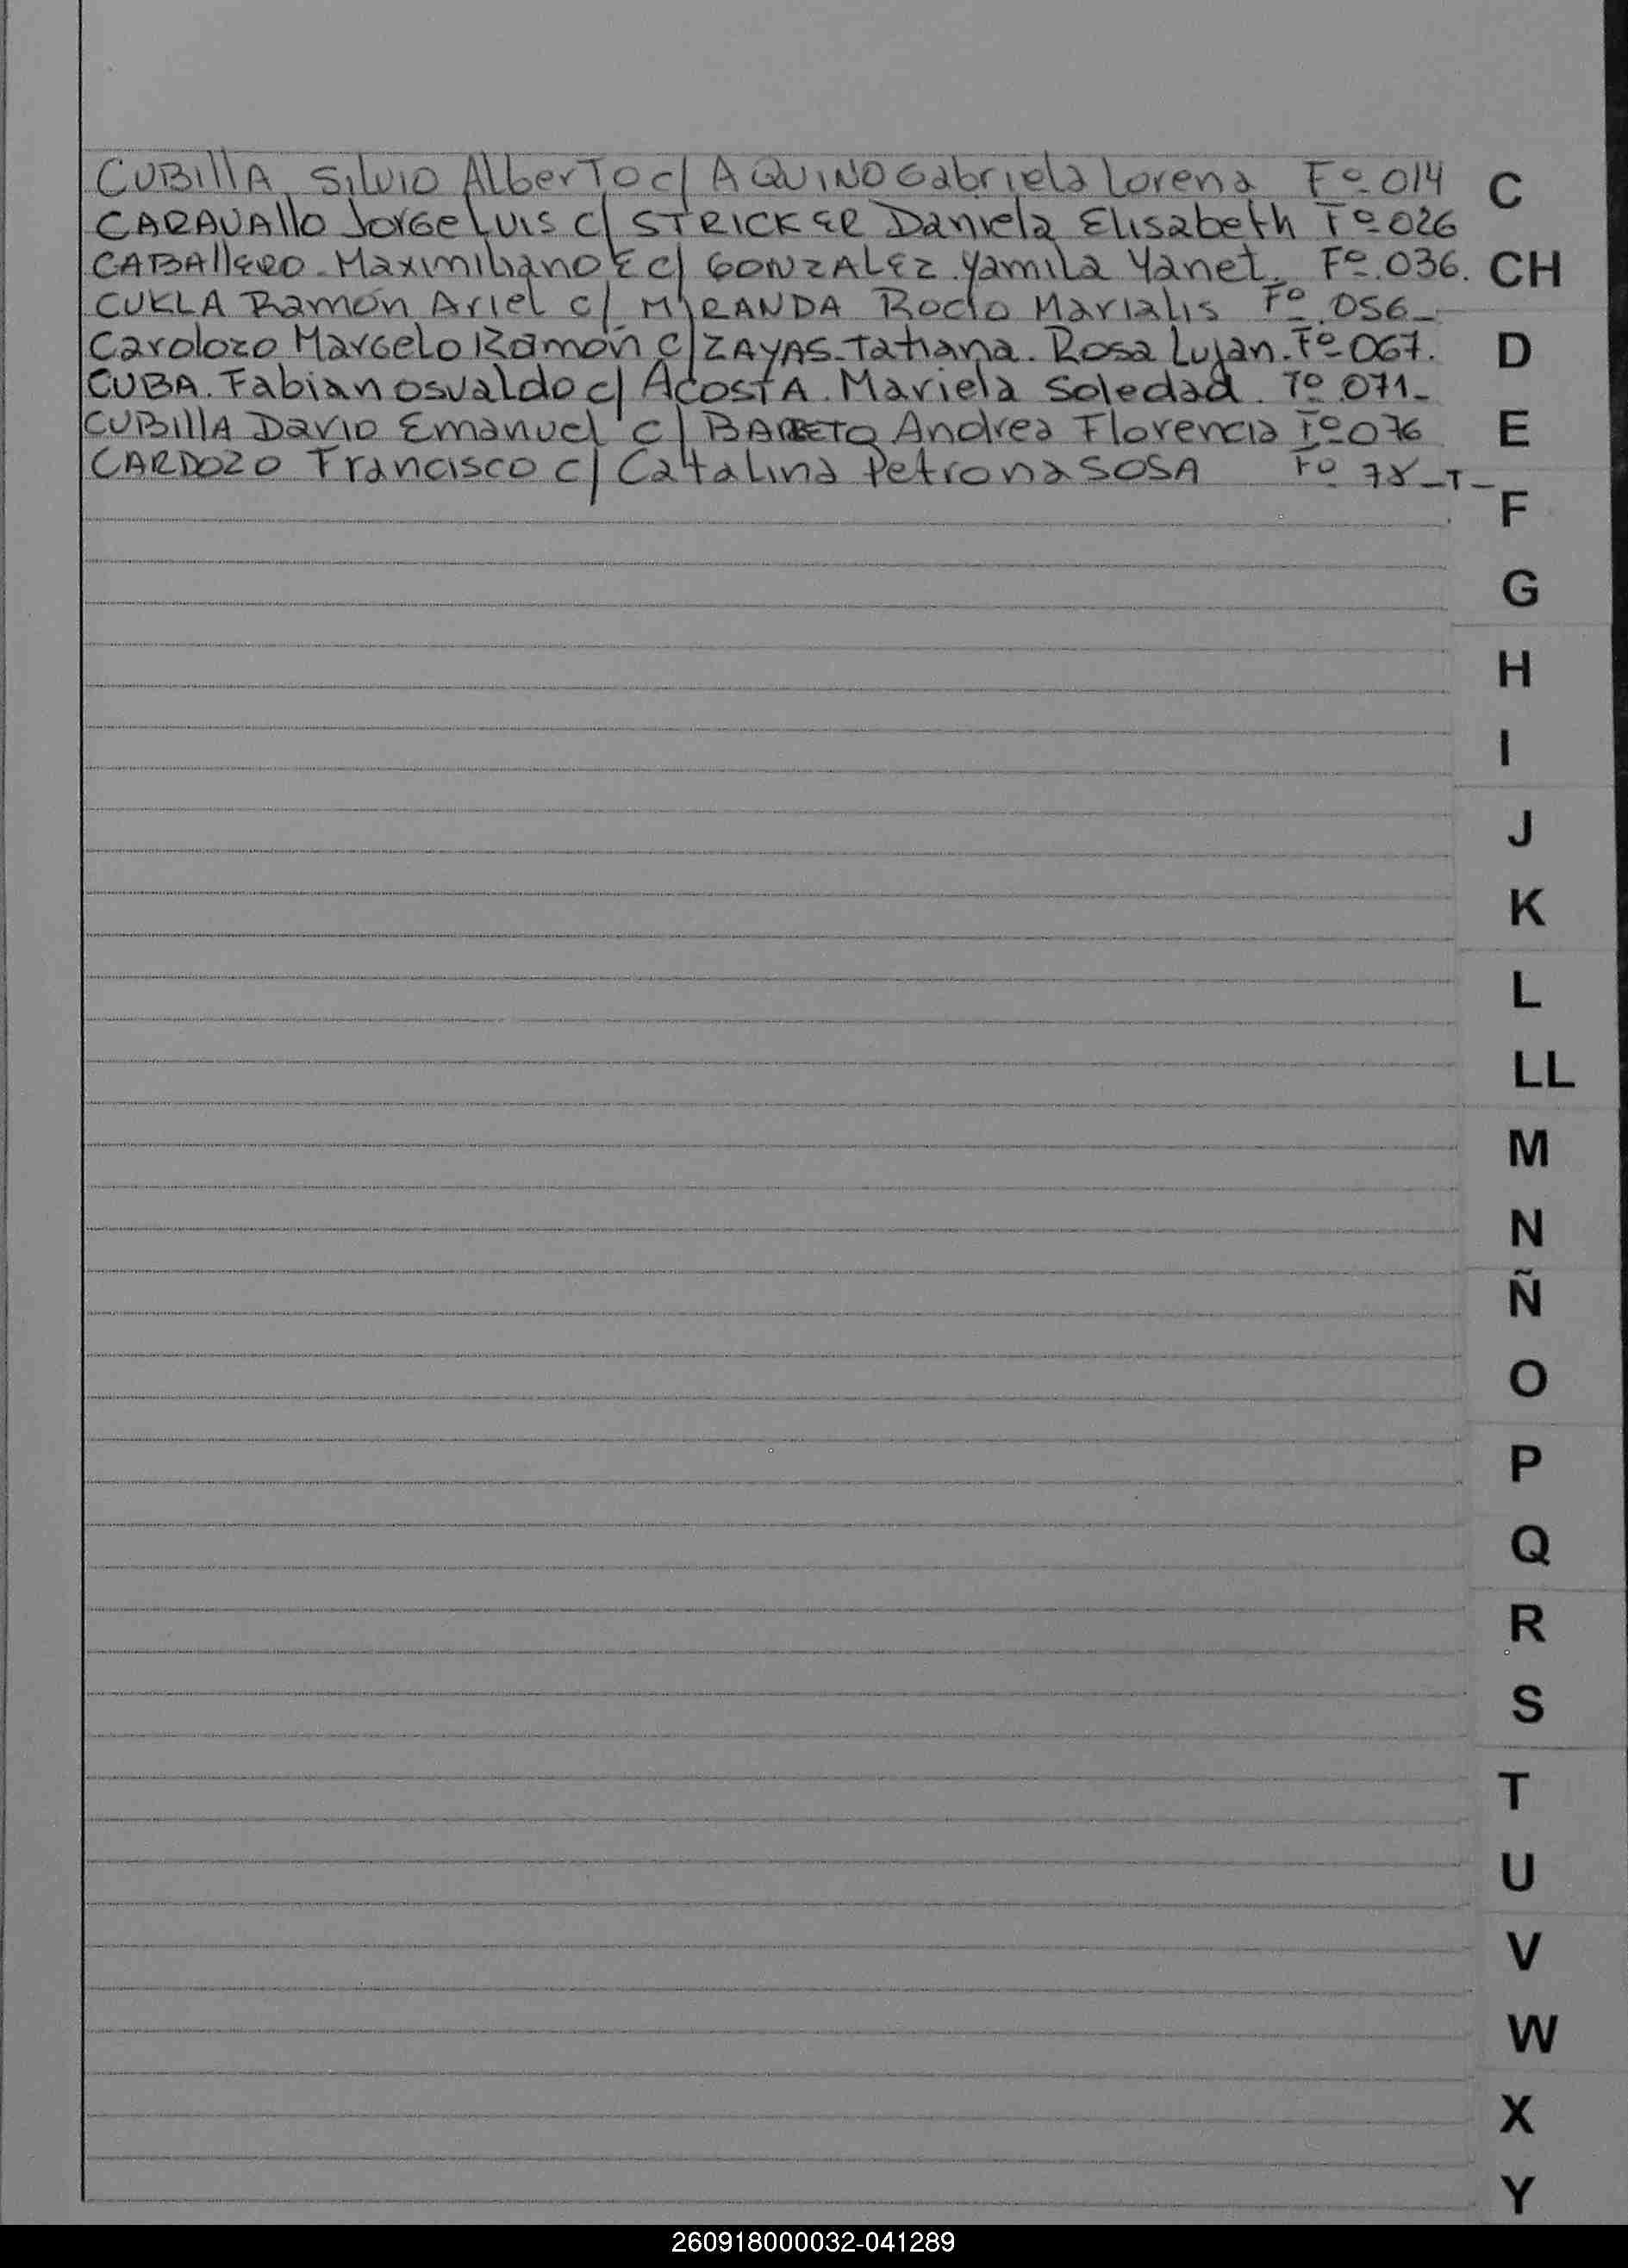 CUBIllA Silvio AlberTo c/ AQUINO Gabriela Lorena Fº 014
CARAVAllo Jorge Luis c/ STRICKER Daniela Elisabeth Fº 026
CABAllERO. Maximiliano E c/ GONZALEZ Yamila Yanet. Fº.036.
CUKLA Ramón Ariel c/ MIRANDA Rocio Marialis Fº.056_
Cardozo Marcelo Ramón c/ ZAYAS_Tatiana. Rosa Lujan. Fº 067.
CUBA. Fabian osvaldo c/ AcosTA. Mariela Soledad. Fº 071_
CUBIllA Dario Emanuel c/ BARRETO Andrea Florencia Fº 076
CARDOZO Francisco c/ Catalina Petrona SOSA Fº 78_T_
C
CH
D
E
F
G
H
I
J
K
L
LL
M
N
Ñ
O
P
Q
R
S
T
U
V
W
X
Y
260918000032-041289